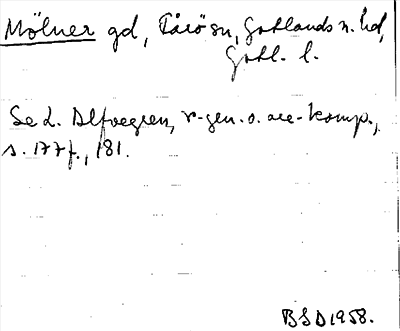 Mölner gd, Fårö sn, Gotlands n. hd,
Gotl. l.
Se L. Alfvegren, r-gen. o. ace-komp.,
s. 177f., 181.
BSD 1958.